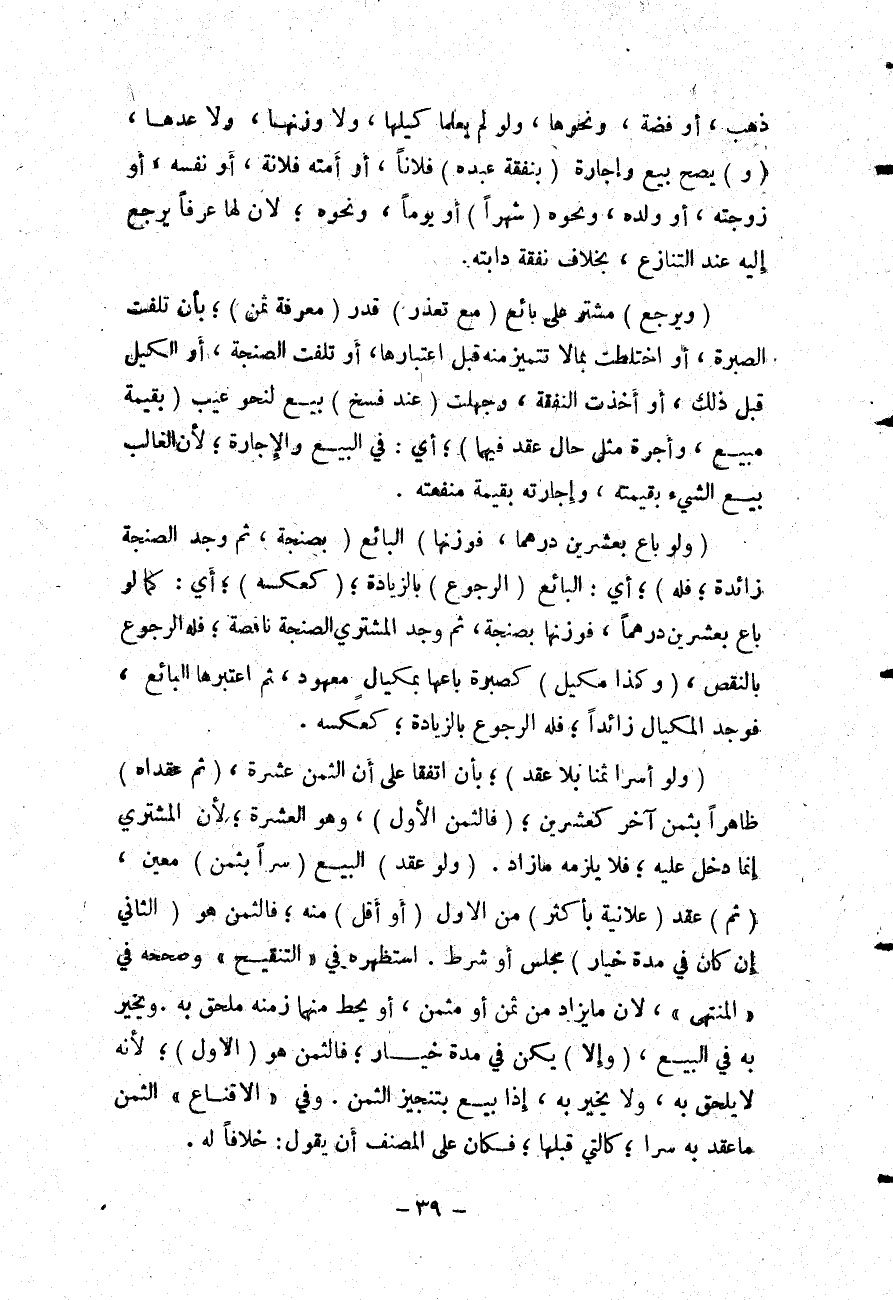 ذهب ، أو فضة ، ونحوها ، ولو لم يعلما كيلها ، ولا وزنها ، ولا عدها ،
( و ) يصح بيع وإجارة ( بنفقة عبده ) فلاناً ، أو أمته فلانة ، أو نفسه ، أو
زوجته ، أو ولده ، ونحوه ( شهراً ) أو يوماً ، ونحوه ؛ لان لها عرفاً يرجع
إليه عند التنازع ، بخلاف نفقة دابته .
( ويرجع ) مشتر على بائع ( مع تعذر ) قدر ( معرفة ثمن ) ؛ بأن تلفت
الصبرة ، أو اختلطت بمالا تتميز منه قبل اعتبارها، أو تلفت الصنجة ، أو الكيل
قبل ذلك ، أو أخذت النفقة ، وجهلت ( عند فسخ ) بيع لنحو عيب ( بقيمة
مبيع ، وأجرة مثلى حال عقد فيها ) ؛ أي : في البيع والإجارة ؛ لأن الغالب
بيع الشيء بقيمته ، وإجارته بقيمة منفعته .
( ولو باع بعشرين درهما ، فوزنها ) البائع ( بصنجة ، ثم وجد الصنجة
زائدة ؛ فله ) ؛ أي : البائع ( الرجوع ) بالزيادة ؛ ( كعكسه ) ؛ أي : كما لو
باع بعشرين درهماً ، فوزنها بصنجة ، ثم وجد المشتري الصنجة ناقصة ؛ فله الرجوع
بالنقص ، ( وكذا مكيل ) كصبرة باعها بمكيالٍ معهود ، ثم اعتبرها البائع ،
فوجد المكيال زائداً ؛ فله الرجوع بالزيادة ؛ كعكسه .
( ولو أسرا ثمنا بلا عقد ) ؛ بأن اتفقا على أن الثمن عشرة ، ( ثم عقداه )
ظاهراً بثمن آخر كعشرين ؛ ( فالثمن الأول ) ، وهو العشرة ؛ لأن المشتري
إنما دخل عليه ؛ فلا يلزمه مازاد . ( ولو عقد ) البيع ( سراً بثمن ) معين ،
( ثم ) عقد ( علانية بأكثر ) من الاول ( أو أقل ) منه ؛ فالثمن هو ( الثاني
إن كان في مدة خيار ) مجلس أو شرط . استظهره في « التنقيح » وصححه في
« المنتهى » ، لان مايزاد من ثمن أو مثمن ، أو يحط منها زمنه ملحق به . ويخير
به في البيع ، ( وإلا ) يكن في مدة خيار ؛ فالثمن هو ( الاول ) ؛ لأنه
لايلحق به ، ولا يخير به ، إذا بيع بتنجيز الثمن . وفي « الاقناع » الثمن
ماعقد به سرا ؛ كالتي قبلها ؛ فكان على المصنف أن يقول : خلافاً له .
– ٣٩ –